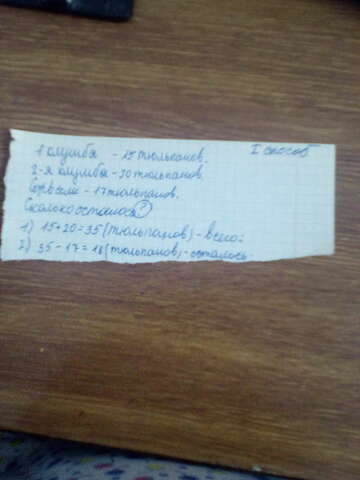 I способ
1 клумба - 15 тюльпанов.
2-я клумба - 20 тюльпанов
Сорвали - 17 тюльпанов.
Сколько осталось?
1) 15+20=35 (тюльпанов) - всего;
2) 35-17=18 (тюльпанов) - осталось.